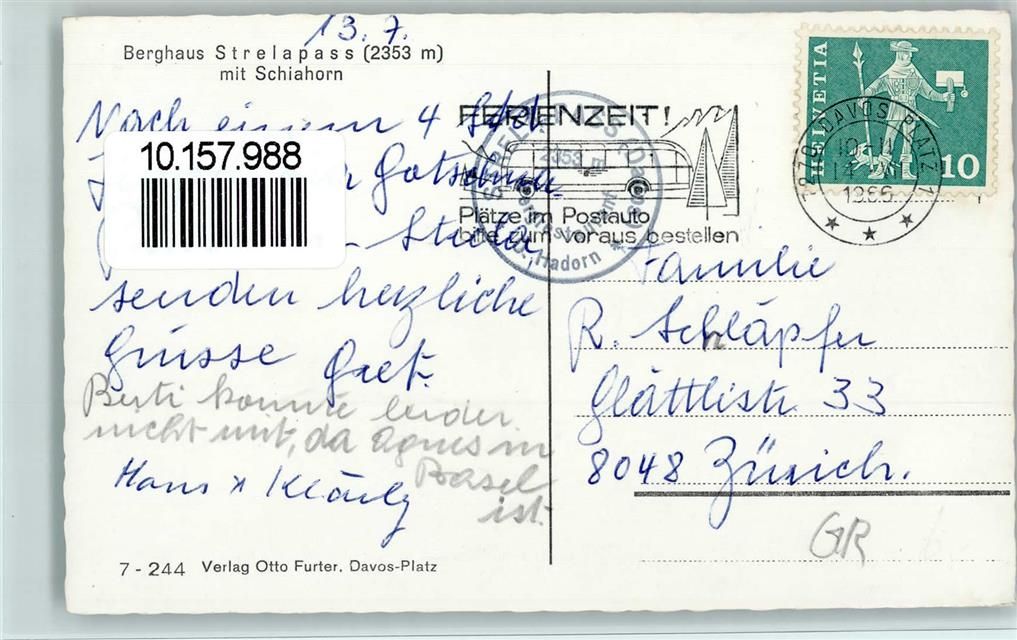 13. 7.
Berghaus Strelapass (2353 m)
mit Schiahorn
Nach einem 4 Std.
10.157.988
senden herzliche
Grüsse Gret.
Berti konnte leider
nicht mit, da Agnes in
Basel
ist.
Hans + Klärly
7-244 Verlag Otto Furter, Davos-Platz
FERIENZEIT!
Plätze im Postauto
bitte zum voraus bestellen
2353 m
Hadorn
HELVETIA
10
DAVOS PLATZ 1
1966
Familie
R. Schläpfer
Glättlistr. 33
8048 Zürich.
GR